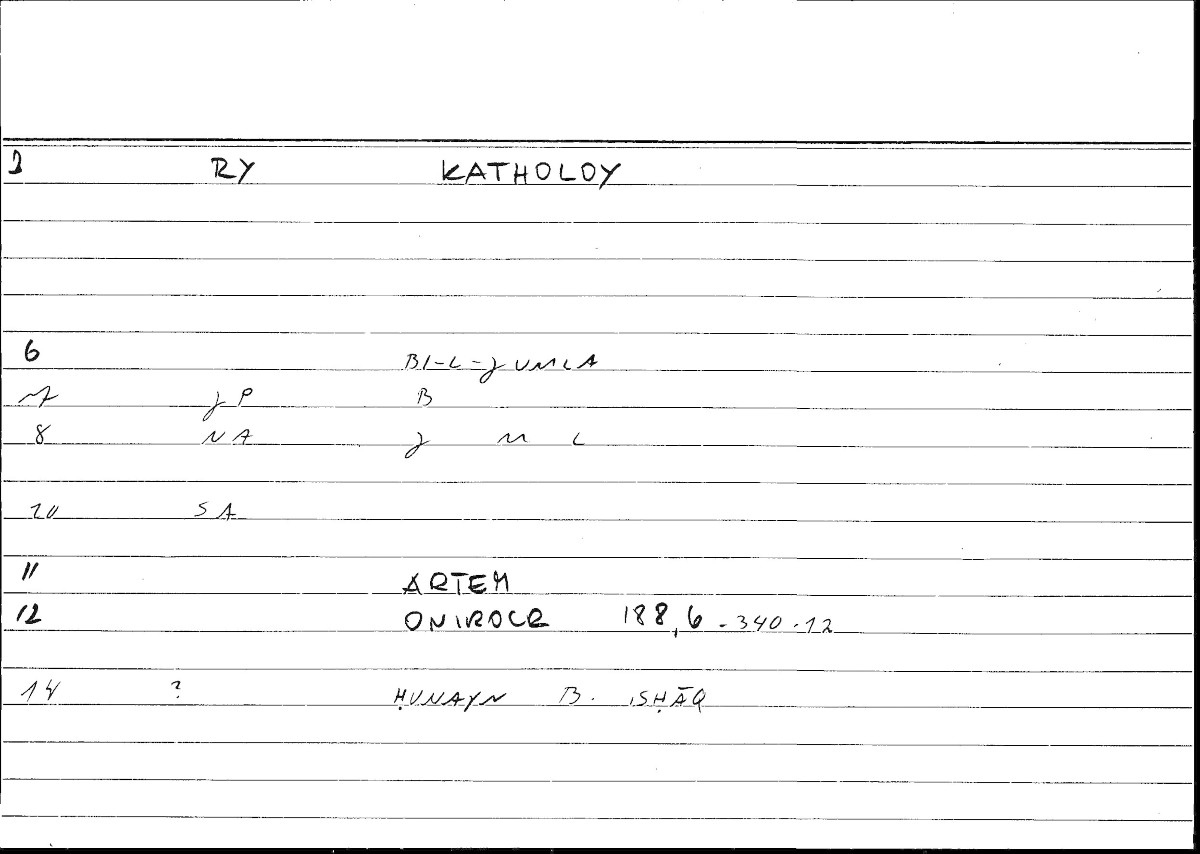 1 RY KATHOLOY
6 BI-L-JUMLA
7 JP B
8 NA J M L
10 SA
11 ARTEM
12 ONIROCR 188,6-340.12
14 ? ḤUNAYN B. ISḤĀQ